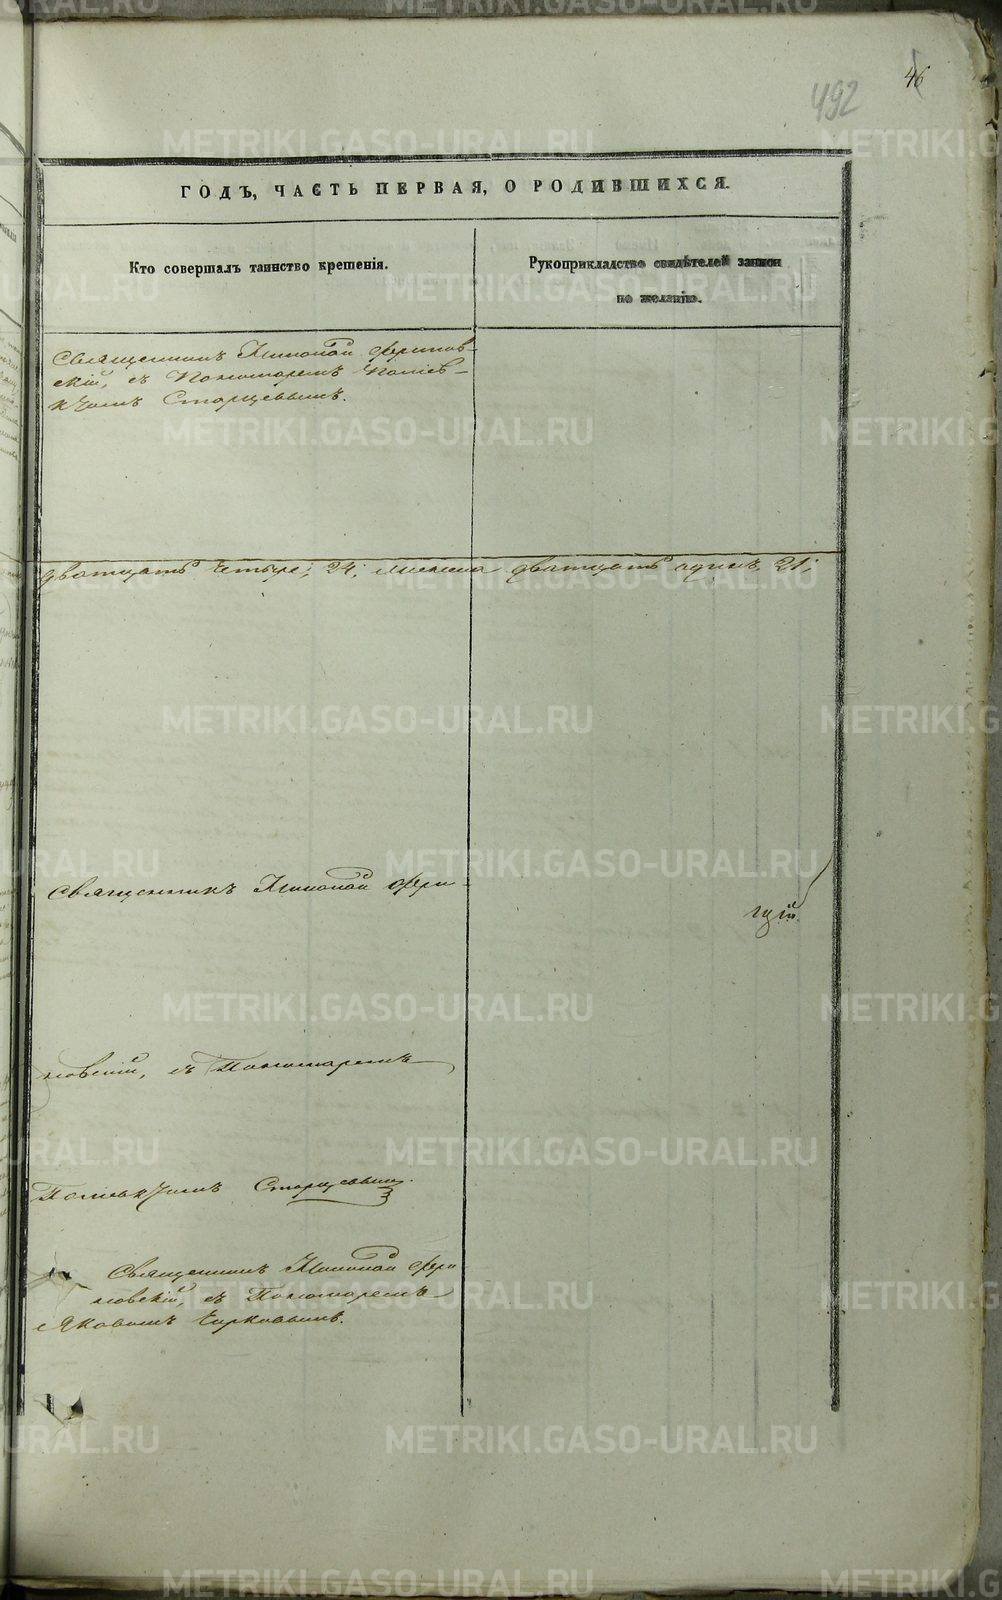 46
492
ГОДЪ, ЧАСТЬ ПЕРВАЯ, О РОДИВШИХСЯ.
Кто совершалъ таинство крещенія.
Рукоприкладство свидѣтелей записи
по желанію.
Священникъ Николай
скій, съ Пономаремъ
Старцевымъ.
двадцать четыре, 24, женска двадцать одинъ 21,
Священникъ Николай
новскій, съ Пономаремъ
Старцевымъ.
Священникъ Николай
новскій, съ Пономаремъ
Яковомъ Чирковымъ.
METRIKI.GASO-URAL.RU